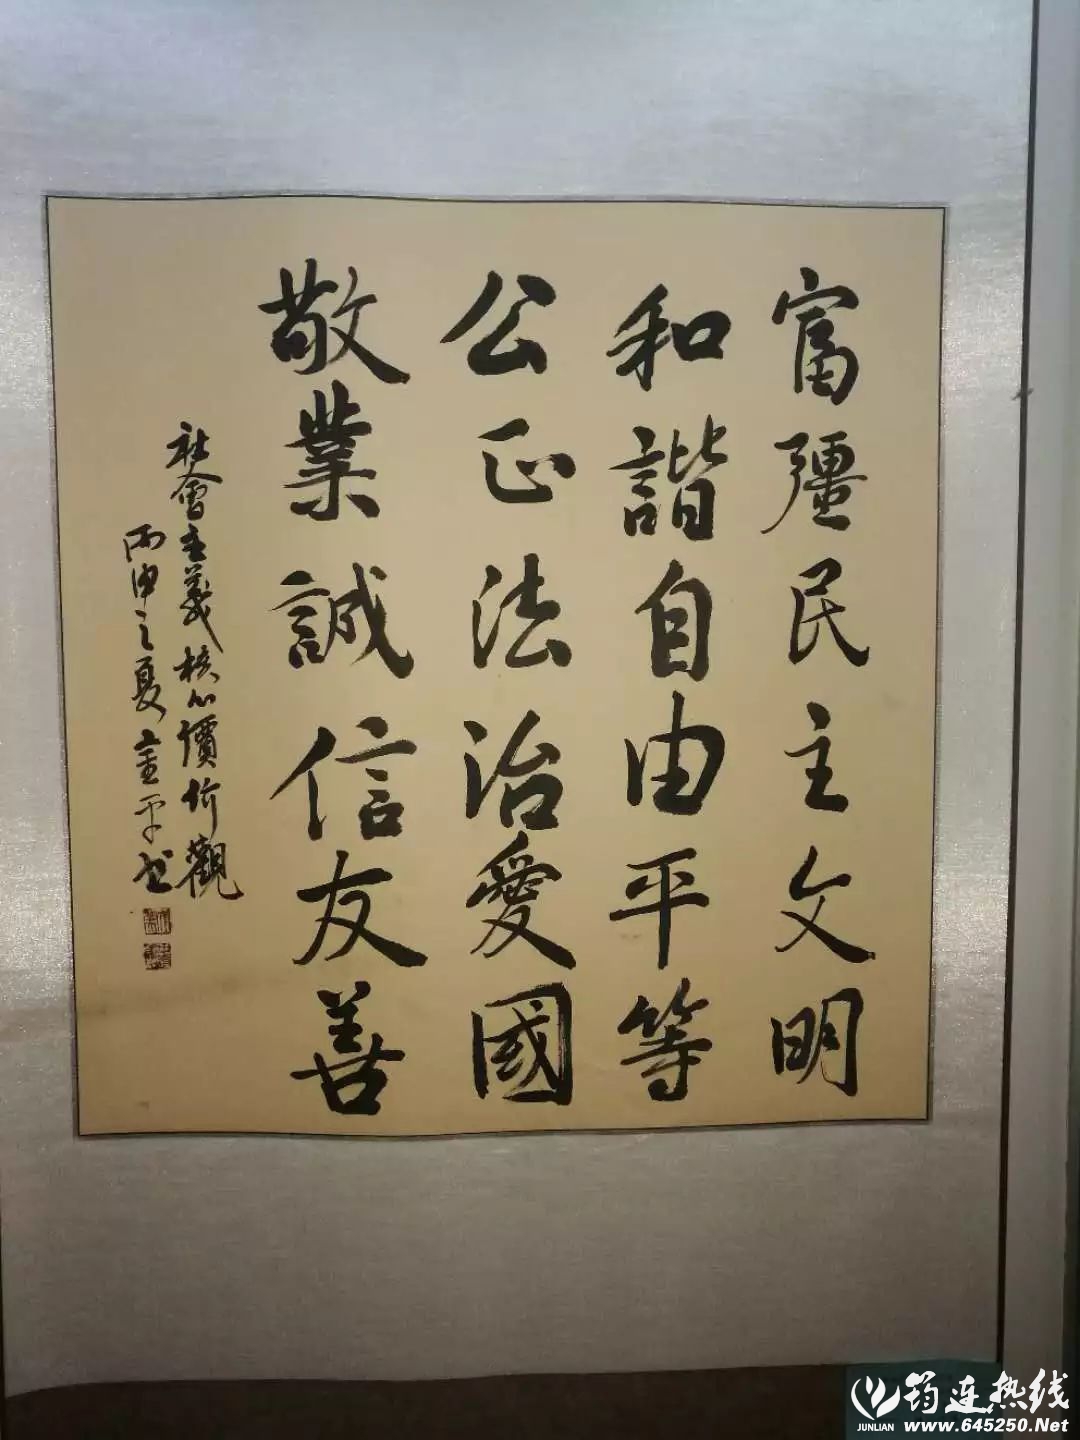 富彊民主文明
和諧自由平等
公正法治愛國
敬業誠信友善
社會主義核心價值觀
丙申之夏
書
筠连热线
JUNLIAN
www.645250.Net